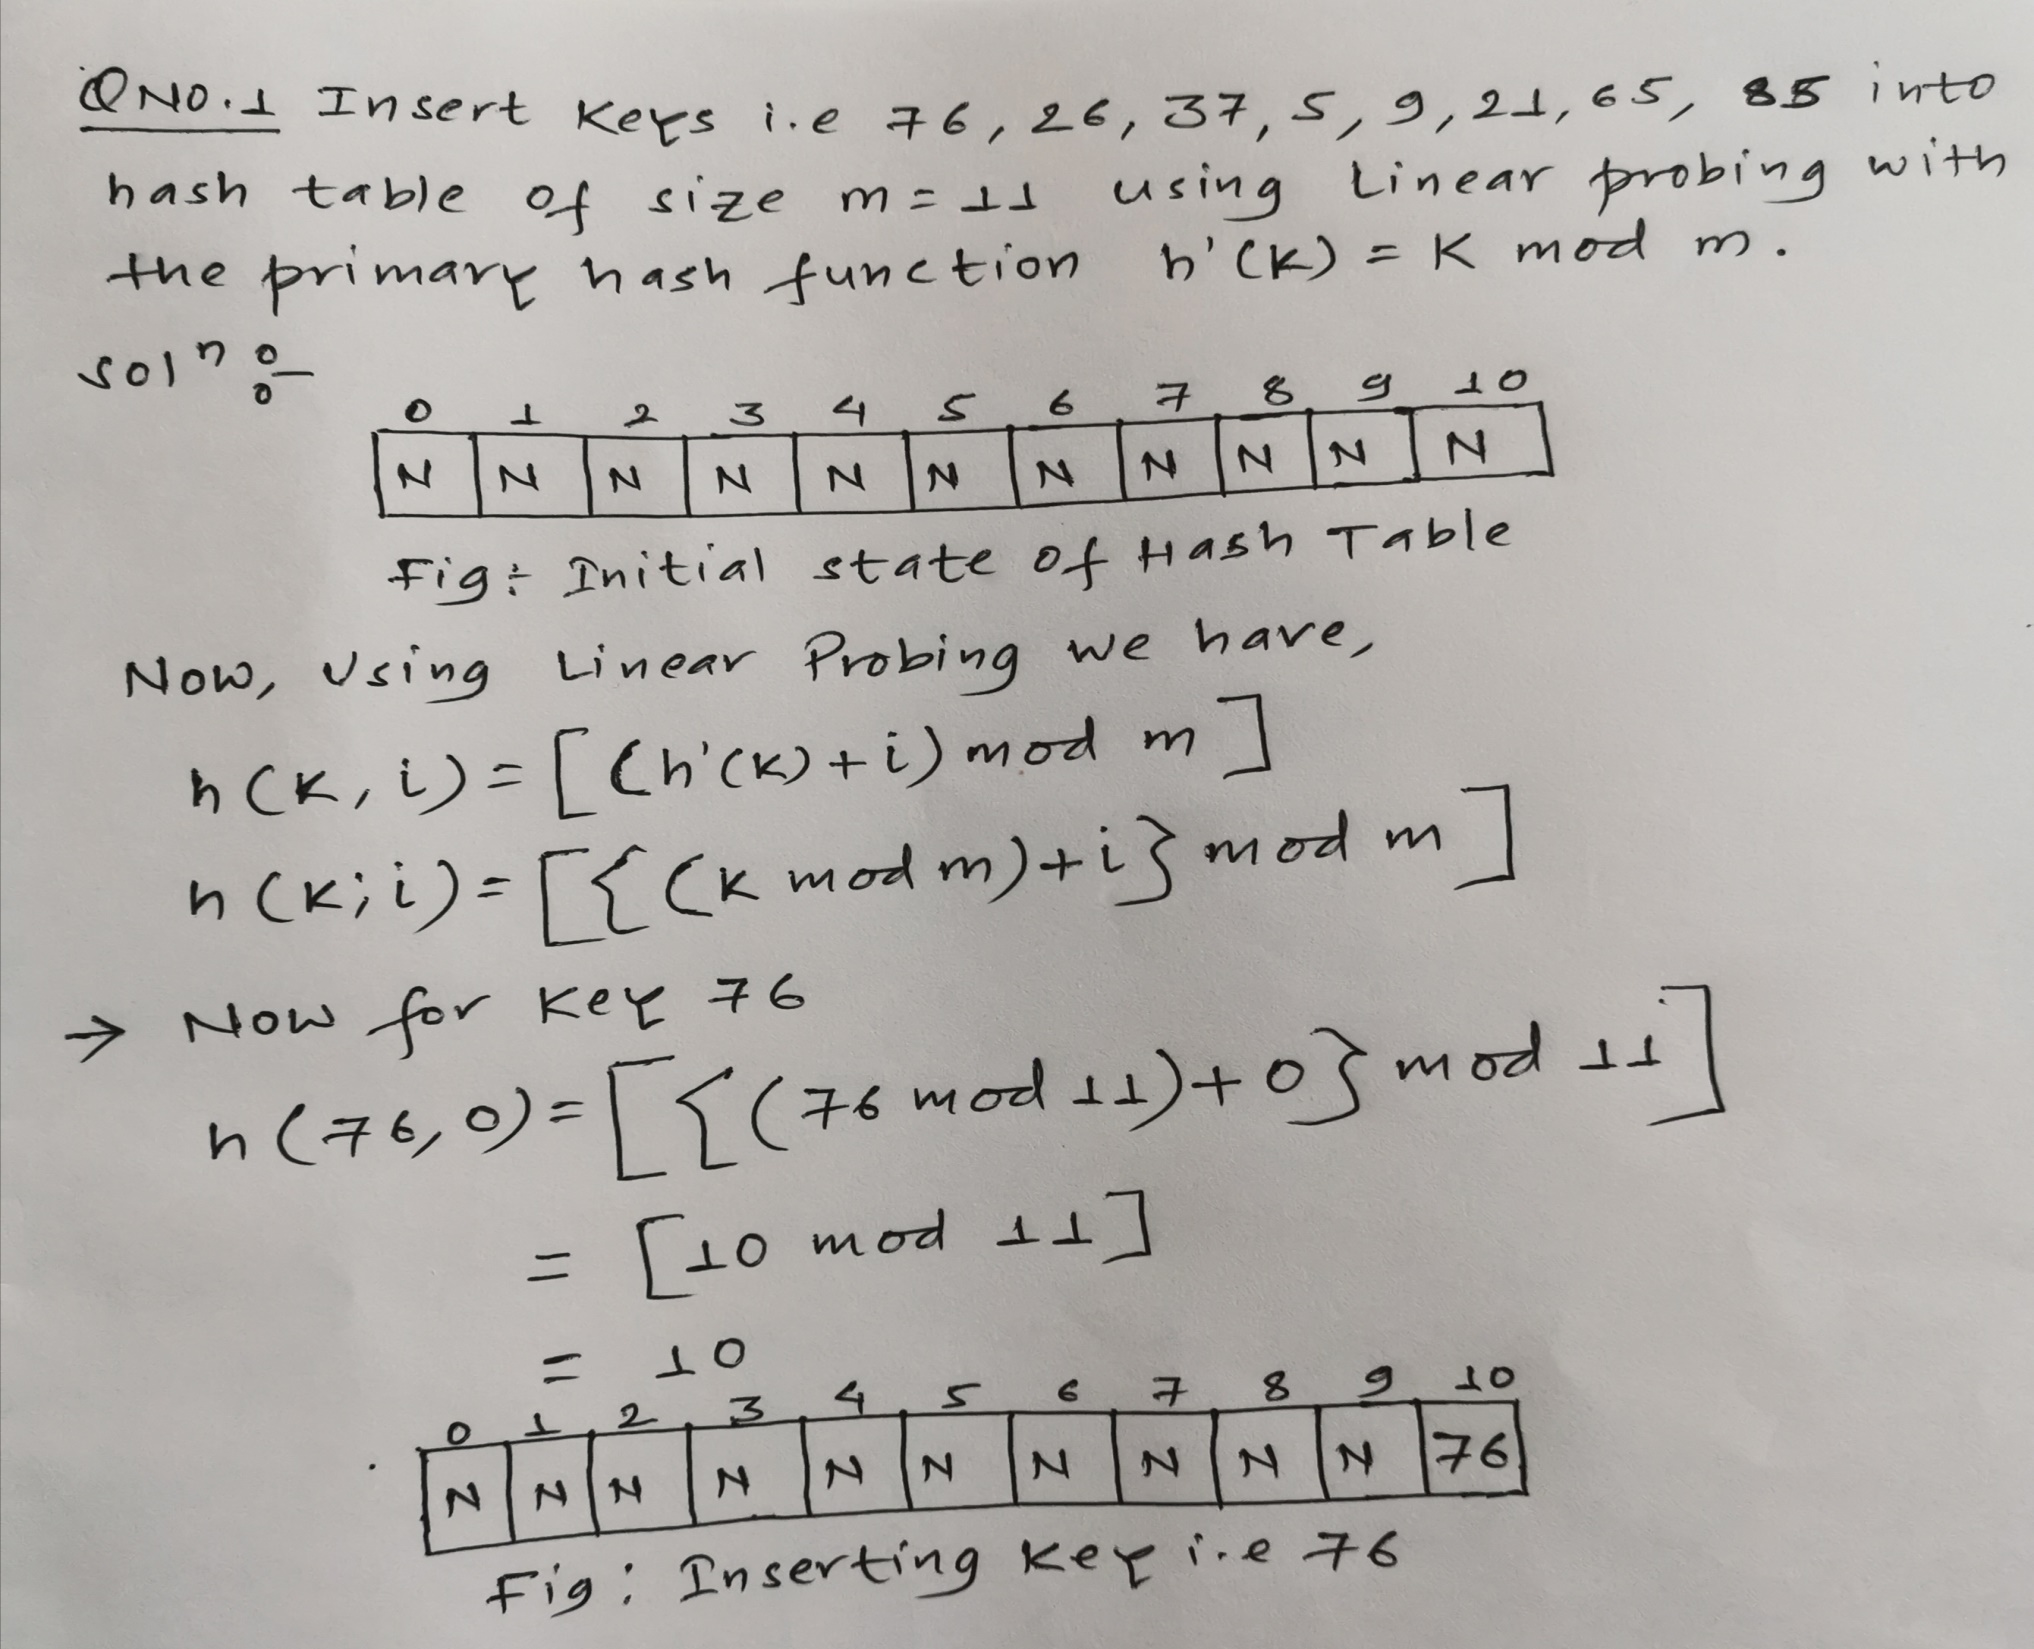 QNO.1 Insert Keys i.e 76, 26, 37, 5, 9, 21, 65, 85 into
hash table of size m = 11 using Linear probing with
the primary hash function h'(K) = K mod m.
solⁿ :-
0 1 2 3 4 5 6 7 8 9 10
N N N N N N N N N N N
Fig: Initial state of Hash Table
Now, Using Linear Probing we have,
h(K, i) = [(h'(K) + i) mod m]
h(K; i) = [{(K mod m) + i} mod m]
→ Now for Key 76
h(76, 0) = [{(76 mod 11) + 0} mod 11]
= [10 mod 11]
= 10
0 1 2 3 4 5 6 7 8 9 10
N N N N N N N N N N 76
Fig: Inserting Key i.e 76